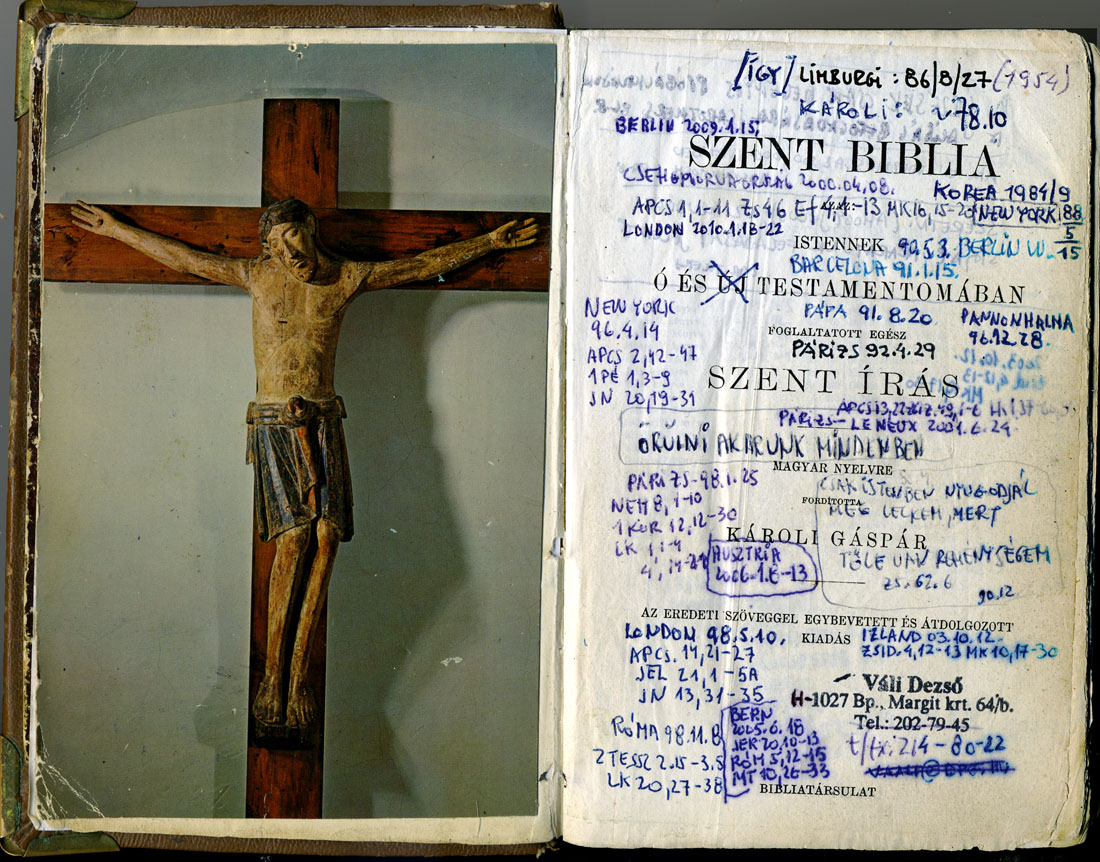 [ÍGY] LIMBURGI : 86/8/27 (1954)
KÁROLI: 78.10
BERLIN 2009.1.15.
SZENT BIBLIA
2000.04.08.
KOREA 1984/9
APCS 1,1-11 ZS 46 Ef 4,1-13 MK 16,15-20
NEW YORK 88
5
15
LONDON 2010.1.18-22
ISTENNEK
90.5.3. BERLIN W.
BARCELONA 91.1.15.
Ó ÉS ÚJ TESTAMENTOMÁBAN
NEW YORK
96.4.14
APCS 2,42-47
1 PÉ 1,3-9
JN 20,19-31
PÁPA 91.8.20
PANNONHALMA
96.12.28.
FOGLALTATOTT EGÉSZ
PÁRIZS 92.4.29
SZENT ÍRÁS
PÁRIZS - LE NEUX 2001.6.24.
ÖRÜLNI AKARUNK MINDENBEN
MAGYAR NYELVRE
PÁRIZS - 98.1.25
NEH 8,1-10
1 KOR 12,12-30
LK 1,1-4
4,14-21
CSAK ISTENBEN NYUGODJÁL
FORDÍTOTTA
MEG LELKEM, MERT
KÁROLI GÁSPÁR
TŐLE VAN REMÉNYSÉGEM
ZS. 62.6
90.12
AUSZTRIA
2006.1.8-13
AZ EREDETI SZÖVEGGEL EGYBEVETETT ÉS ÁTDOLGOZOTT
KIADÁS
LONDON 98.5.10.
APCS. 14,21-27
JEL 21,1-5A
JN 13,31-35
IZLAND 03.10.12.
ZSID. 4,12-13 MK 10,17-30
Váli Dezső
H-1027 Bp., Margit krt. 64/b.
Tel.: 202-79-45
t/fx. 214-80-22
RÓMA 98.11.8
2 TESSZ 2.15-3.5
LK 20,27-38
BERN
2005.6.18
JER 20,10-13
RÓM 5,12-15
MT 10,26-33
BIBLIATÁRSULAT